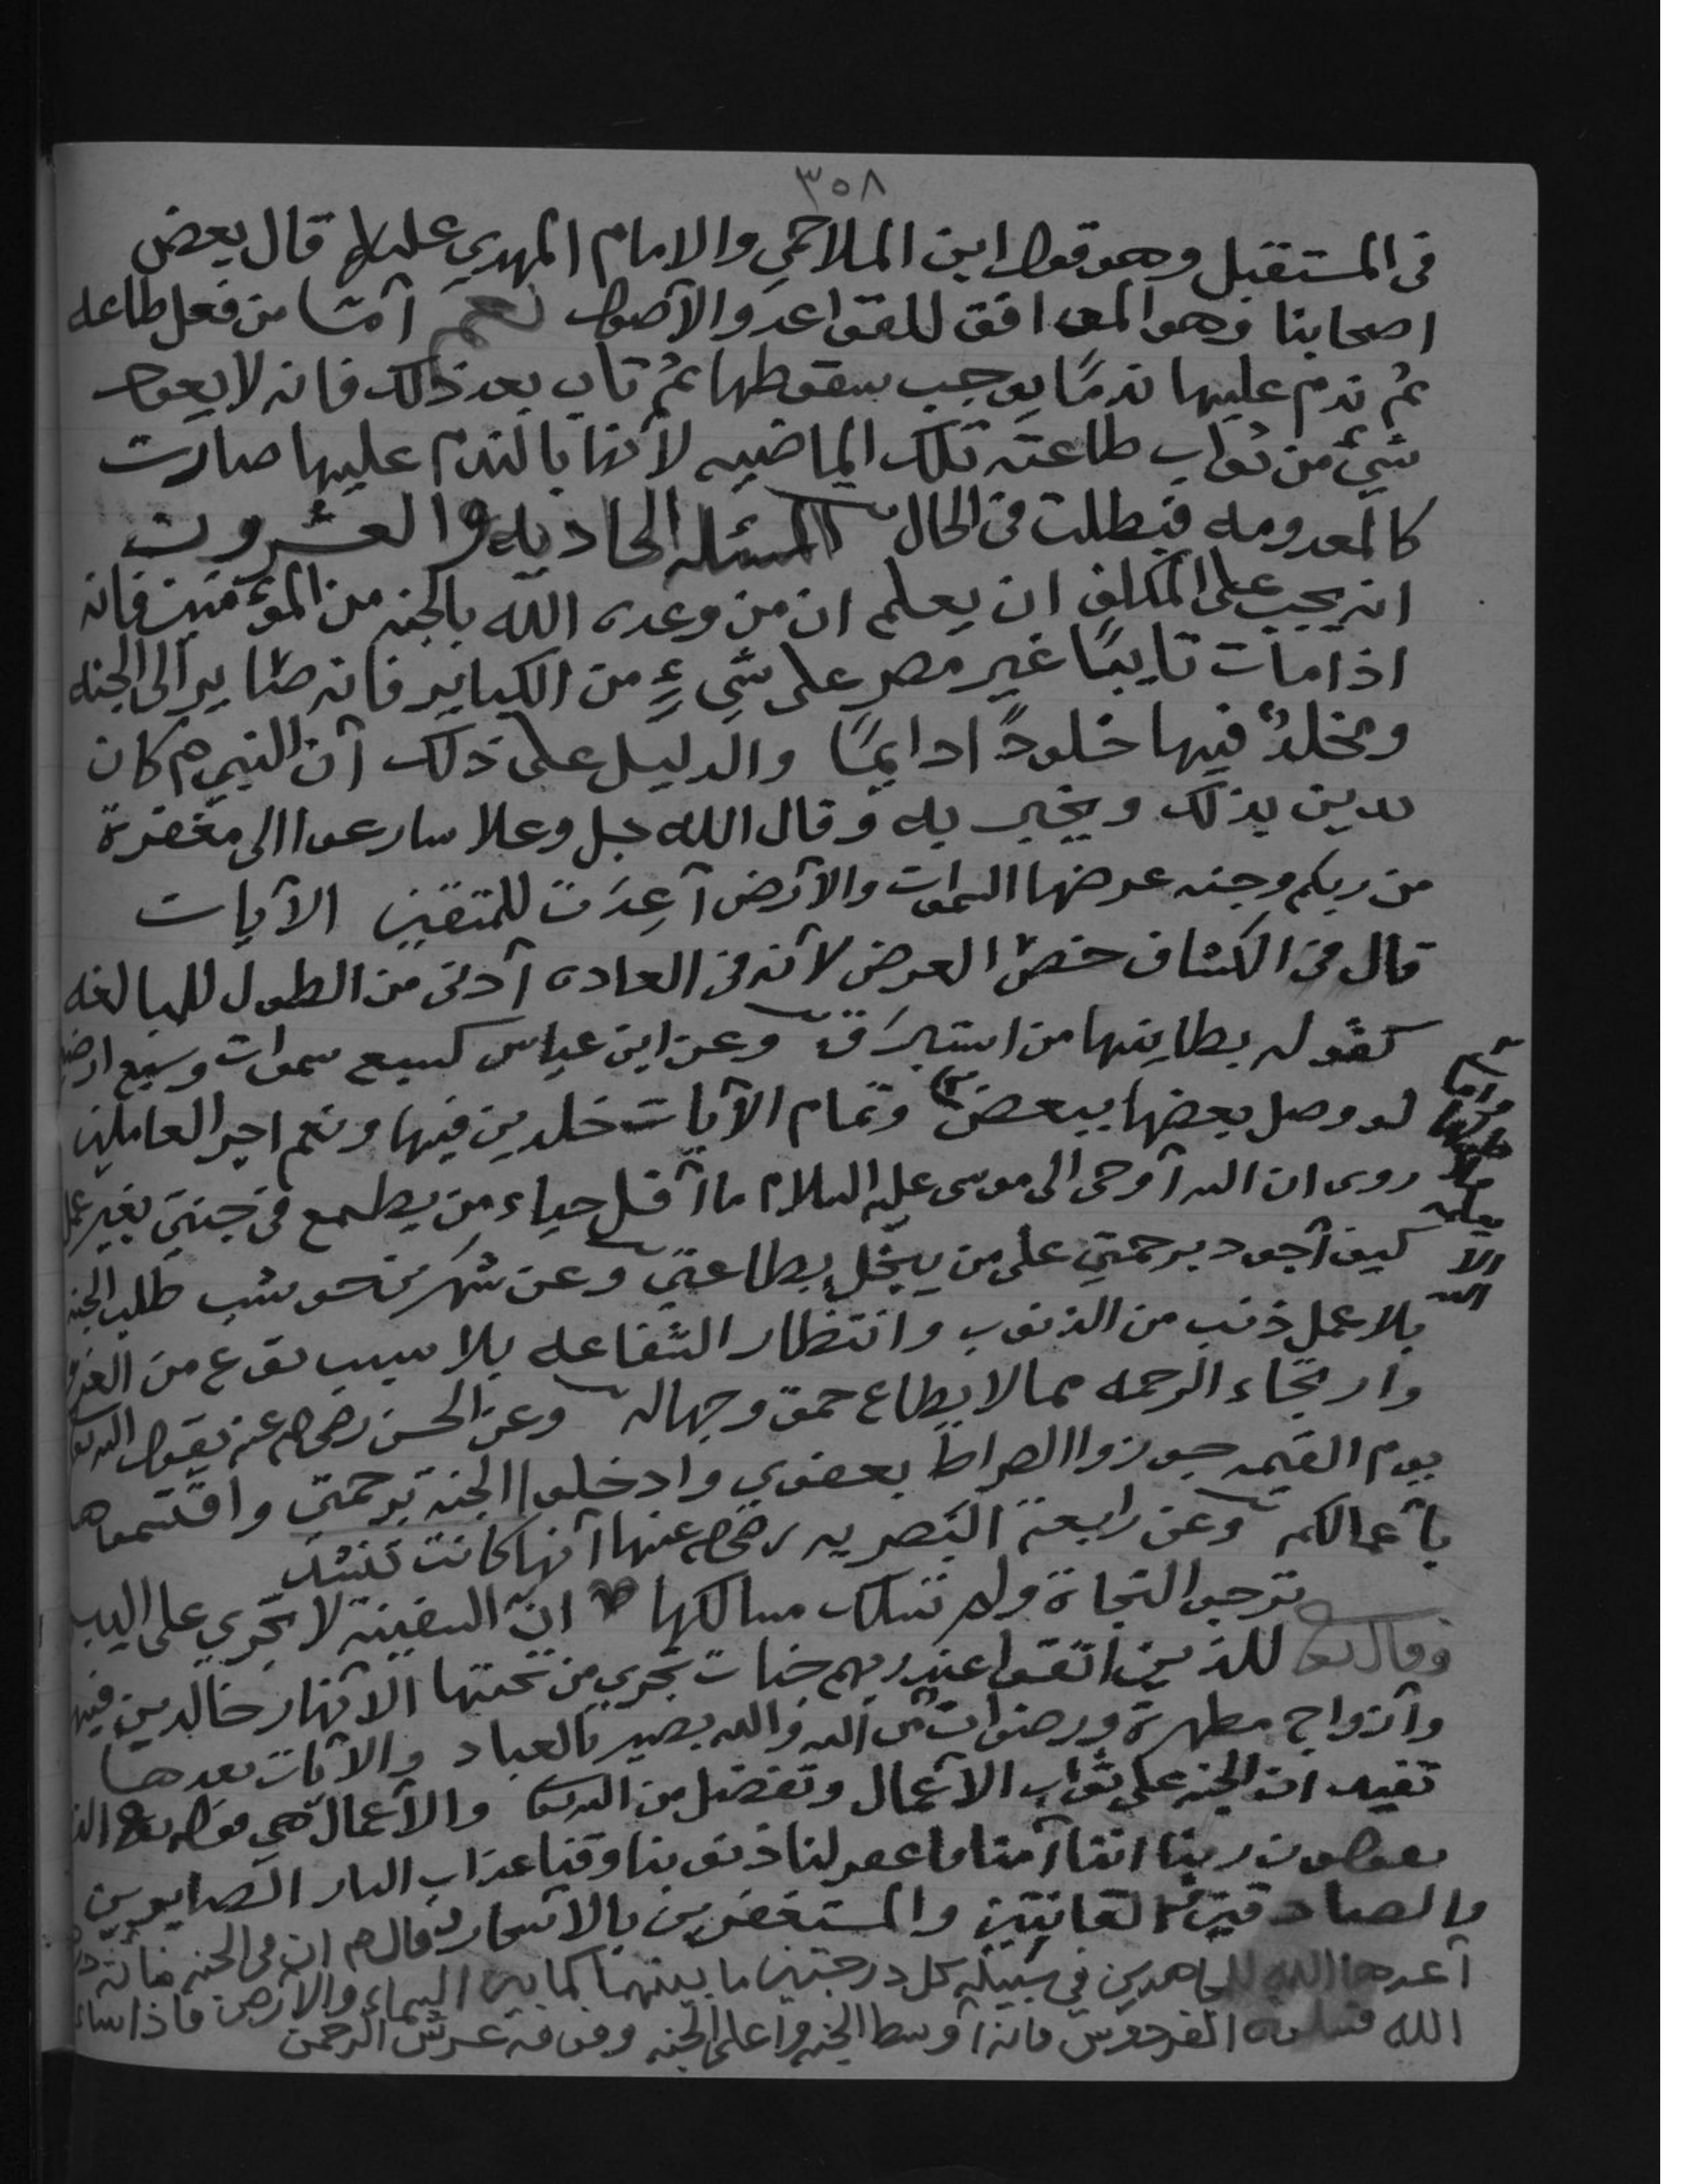 ٣٥٨
فى المستقبل وهو قول ابن الملاحمي والامام المهدي عليلم قال بعض
اصحابنا وهو الموافق للقواعد والأصول نعم أمتا من فعل طاعه
ثم ندم عليها ندمًا يوجب سقوطها ثم تاب بعد ذلك فانه لا يعود
شيئ من ثواب طاعته تلك الماضيه لأنها بالندم عليها صارت
كالمعدومه فبطلت في الحال المسئله الحاديه والعشرون
انه يجب على المكلف ان يعلم ان من وعده الله بالجنه من المؤمنين فانه
اذا مات تايبًا غير مصر على شيءٍ من الكباير فانه صاير الى الجنه
ومخلدٌ فيها خلودًا دايمًا والدليل على ذلك أن النبي صم كان
يدين بذلك ويخبر به وقال الله جل وعلا سارعوا الى مغفرة
من ربكم وجنه عرضها السموات والأرض أعدت للمتقين الآيات
قال في الكشاف خص العرض لأنه في العاده أدنى من الطول للمبالغه
كقوله بطاينها من استبرق وعن ابن عباس كسبع سموات وسبع ارضين
لو وصل بعضها ببعض وتمام الآيات خلدين فيها ونعم اجر العاملين
روى ان الله أوحى الى موسى عليه السلام ما أقل حياء من يطمع في جنتي بغير عمل
كيف أجود برحمتي على من يبخل بطاعتي وعن شهر بن حوشب طلب الجنه
بلا عمل ذنب من الذنوب وانتظار الشفاعه بلا سبب نوع من الغرور
وارتجاء الرحمه ممن لا يطاع حمق وجهاله وعن الحسن رضي الله عنه يقول الله تعا
يوم القيمه جوزوا الصراط بعفوي وادخلوا الجنة برحمتي واقتسموها
بأعمالكم وعن رابعة البصريه رضي الله عنها أنها كانت تنشد
ترجو النجاة ولم تسلك مسالكها ان السفينة لا تجري على اليبس
وقال تعا للذين اتقوا عند ربهم جنات تجري من تحتها الأنهار خالدين فيها
وأزواج مطهرة ورضوان من الله والله بصير بالعباد والآيات بعدها
تفيد ان الجنه على ثواب الأعمال وتفضل من الله تعا والأعمال هي قوله تعا الذين
يقولون ربنا اننا آمنا فاغفر لنا ذنوبنا وقنا عذاب النار الصابرين
والصادقين والقانتين والمستغفرين بالأسحار وقال صم ان في الجنه مائة درجة
أعدها الله للمجاهدين في سبيله كل درجتين ما بينهما كما بين السماء والأرض فاذا سألتم
الله فسلوه الفردوس فانه أوسط الجنه واعلى الجنه وفوقه عرش الرحمن
عرضها
الا
الله